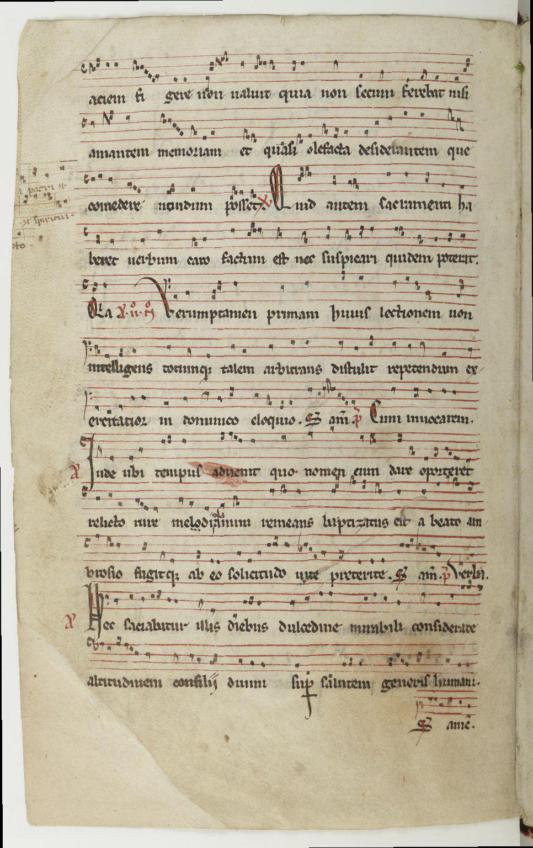 aciem fi gere non valuit quia non secum ferebat nisi
amantem memoriam et quasi olefacta desiderantem que
comedere nondum posset. Quid autem sacramenti ha
beret verbum caro factum est nec suspicari quidem poterit.
Verumptamen primam huius lectionem non
intelligens totumq; talem arbitrans distulit repetendum ex
ercitatior in dominico eloquio. am. Cum invocarem.
Inde ubi tempus advenit quo nomen eum dare oporteret
relicto rure mediolanium remeans baptizatus est a beato am
brosio fugitq; ab eo solicitudo vite preterite. am. Verba.
Nec saciabatur illis diebus dulcedine mirabili considerare
altitudinem consilij divini sup salutem generis humani.
ame.